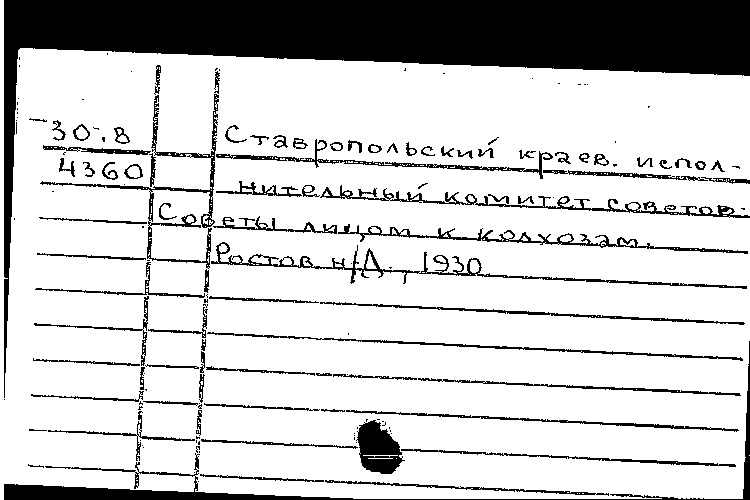 30.8 Ставропольский краев. испол-
4360 нительный комитет советов.
Советы лицом к колхозам.
Ростов н/Д., 1930